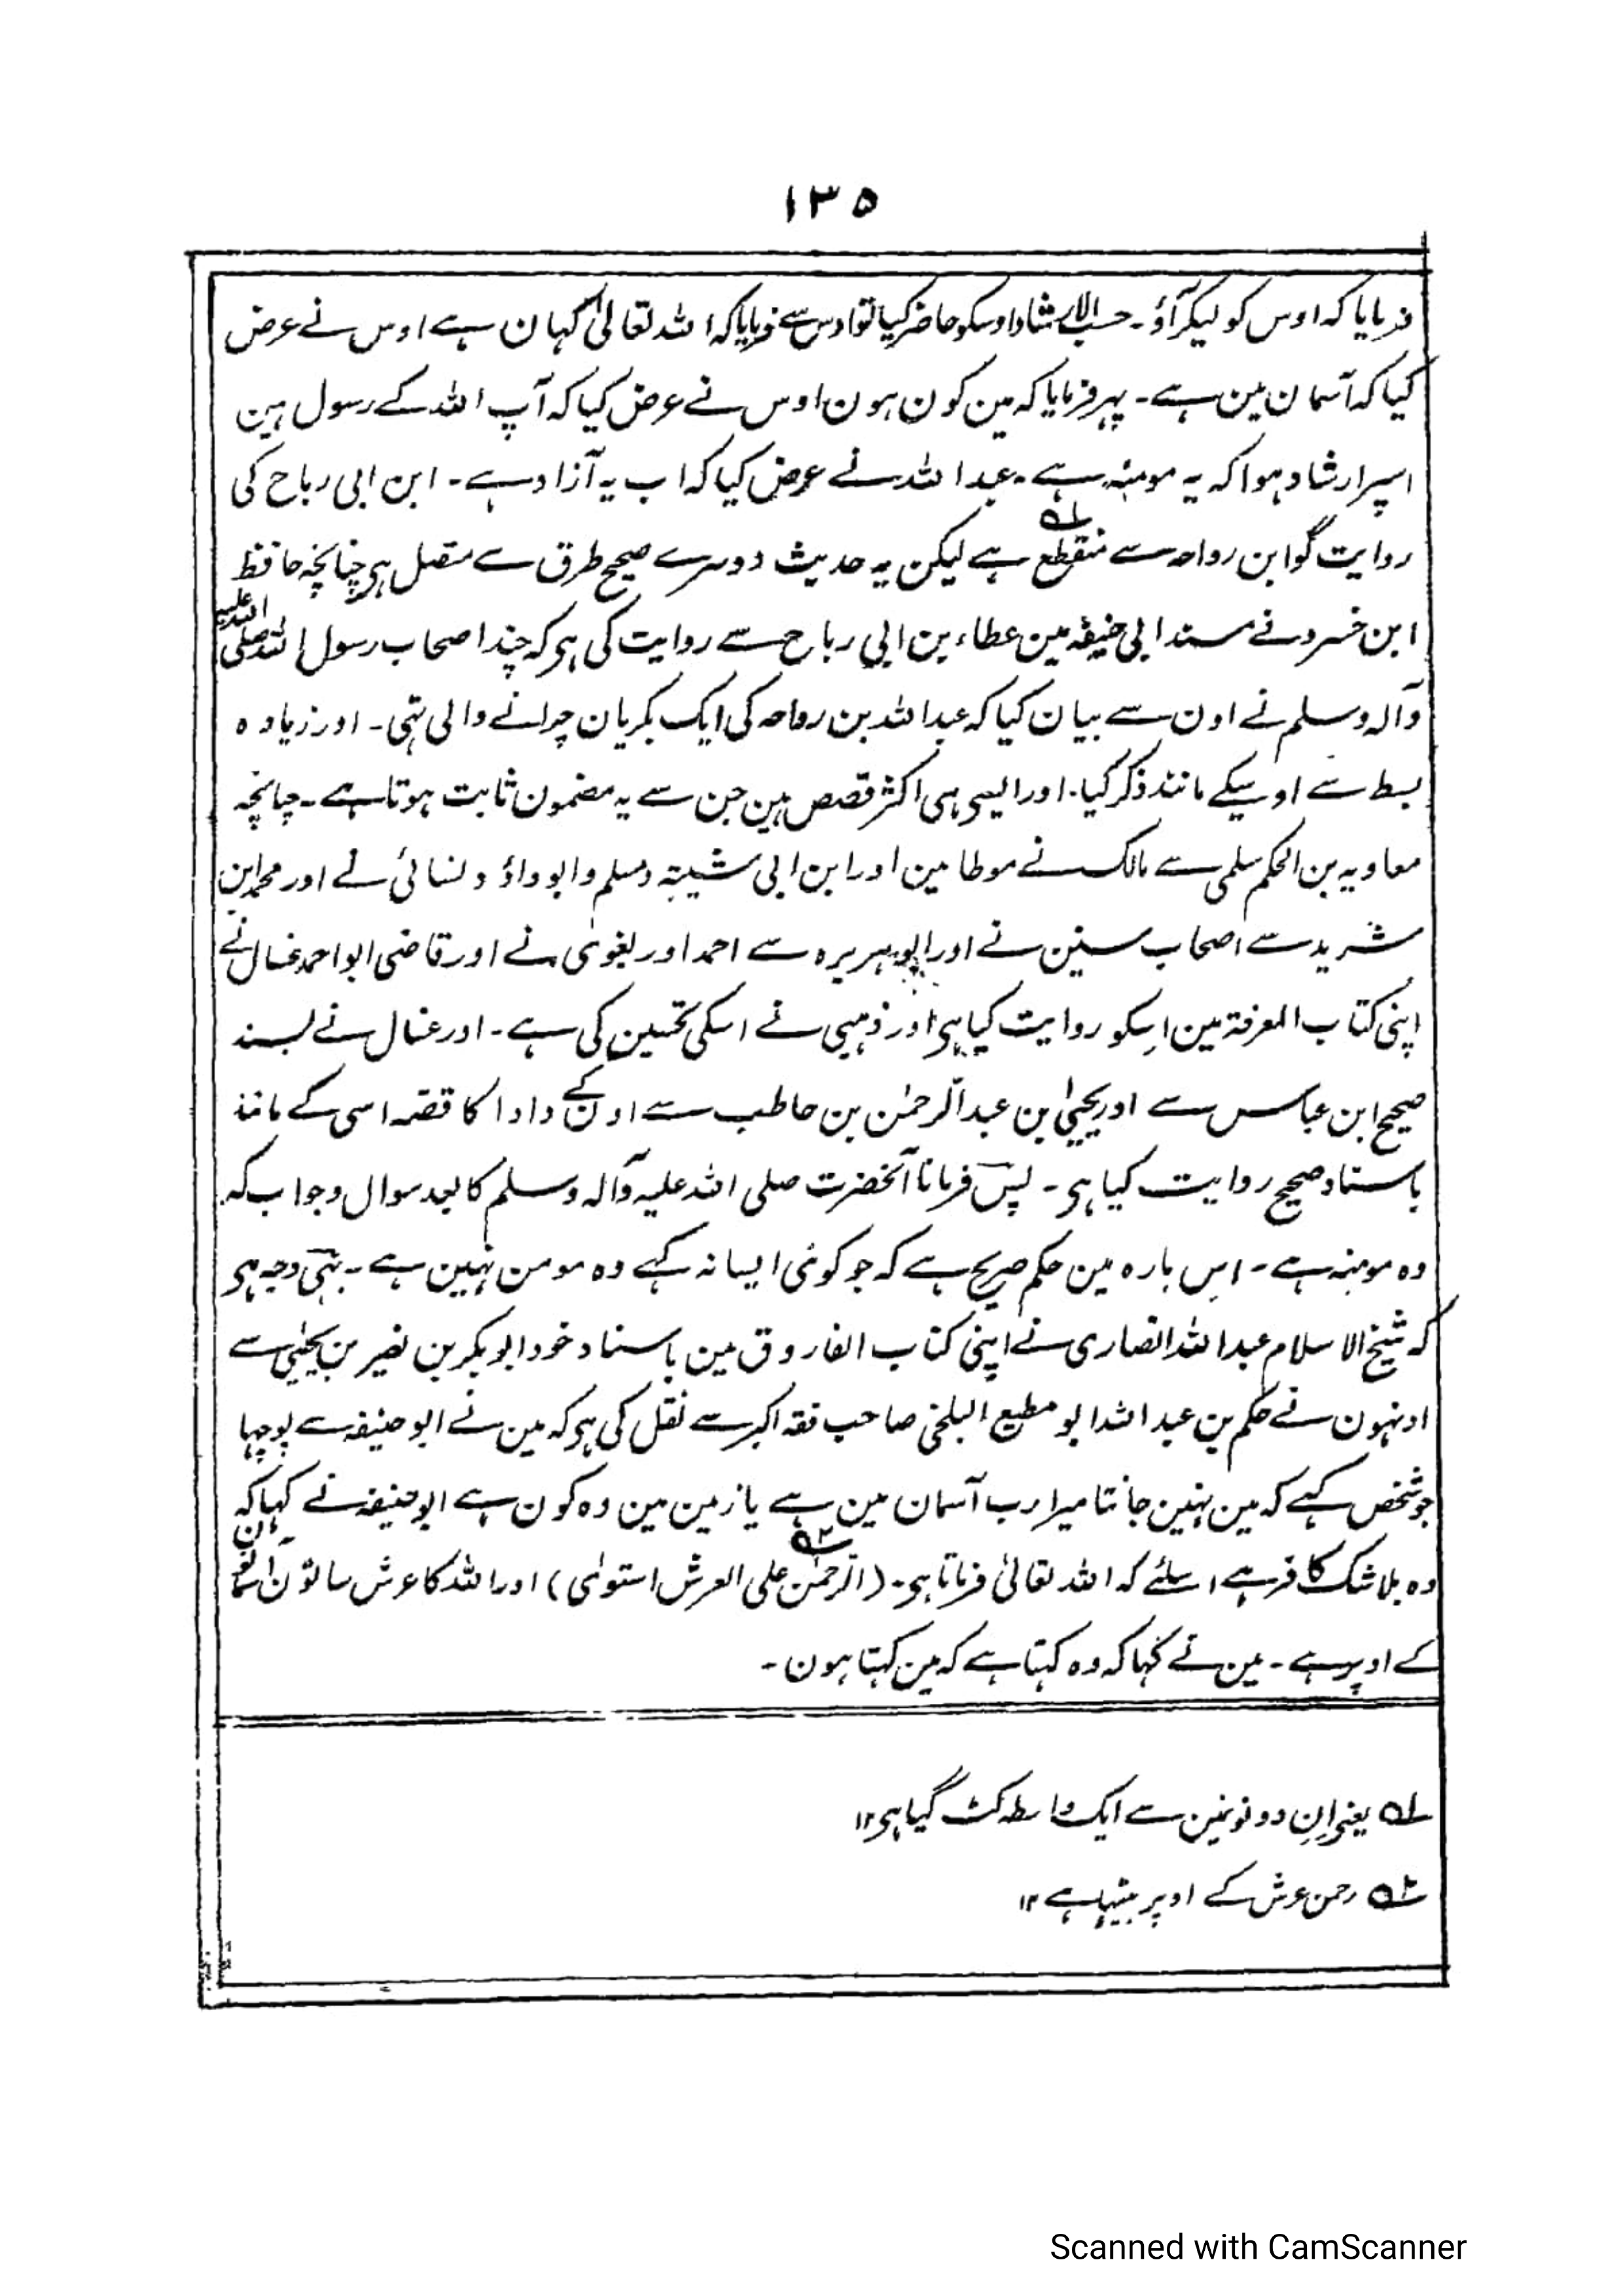 ۱۳۵
فرمایا کہ اوس کو لیکر آؤ۔ حسب الارشاد اوسکو حاضر کیا تو اوس سے فرمایا کہ اللہ تعالیٰ کہان ہے اوس نے عرض
کیا کہ آسمان مین ہے۔ پہر فرمایا کہ مین کون ہون اوس نے عرض کیا کہ آپ اللہ کے رسول ہین
اسپر ارشاد ہوا کہ یہ مومنہ ہے۔ عبد اللہ نے عرض کیا کہ اب یہ آزاد ہے۔ ابن ابی رباح کی
روایت گو ابن رواحہ سے منقطع ؎۱ ہے لیکن یہ حدیث دوسرے صحیح طرق سے متصل ہی چنانچہ حافظ
ابن خسرو نے مسند ابی حنیفہ مین عطاء بن ابی رباح سے روایت کی ہی کہ چند اصحاب رسول اللہ صلی اللہ علیہ
وآلہ وسلم نے اون سے بیان کیا کہ عبد اللہ بن رواحہ کی ایک بکریان چرانے والی تہی۔ اور زیادہ
بسط سے اوسیکے مانند ذکر کیا۔ اور ایسی ہی اکثر قصص ہین جن سے یہ مضمون ثابت ہوتا ہے۔ چنانچہ
معاویہ بن الحکم سلمی سے مالک نے موطا مین اور ابن ابی شیبہ ومسلم وابوداؤد ونسائی نے اور محمد ابن
شرید سے اصحاب سنن نے اور ابوہریرہ سے احمد اور بغوی نے اور قاضی ابو احمد غسال نے
اپنی کتاب المعرفۃ مین اسکو روایت کیا ہی اور ذہبی نے اسکی تحسین کی ہے۔ اور غسال نے بسند
صحیح ابن عباس سے اور یحییٰ بن عبد الرحمٰن بن حاطب سے اون کے دادا کا قصہ اسی کے مانند
باسناد صحیح روایت کیا ہی۔ پس فرمانا آنحضرت صلی اللہ علیہ وآلہ وسلم کا بعد سوال وجواب کہ
وہ مومنہ ہے۔ اس بارہ مین حکم صریح ہے کہ جو کوئی ایسا نہ کہے وہ مومن نہین ہے۔ یہی وجہ ہی
کہ شیخ الاسلام عبد اللہ انصاری نے اپنی کتاب الفاروق مین باسناد خود ابوبکر بن نصیر بن یحییٰ سے
اونہون نے حکم بن عبد اللہ ابو مطیع البلخی صاحب فقہ اکبر سے نقل کی ہی کہ مین نے ابو حنیفہ سے پوچہا
جو شخص کہے کہ مین نہین جانتا میرا رب آسمان مین ہے یا زمین مین وہ کون ہے ابو حنیفہ نے کہا کہ
وہ بلا شک کافر ہے اسلئے کہ اللہ تعالیٰ فرماتا ہی۔ (الرحمٰن علی العرش استویٰ) ؎۲ اور اللہ کا عرش ساتون آسمانون
کے اوپر ہے۔ مین نے کہا کہ وہ کہتا ہے کہ مین کہتا ہون۔
؎۱ یعنی ان دونونمین سے ایک واسطہ کٹ گیا ہی ۱۲
؎۲ رحمن عرش کے اوپر بیٹہا ہے ۱۲
Scanned with CamScanner